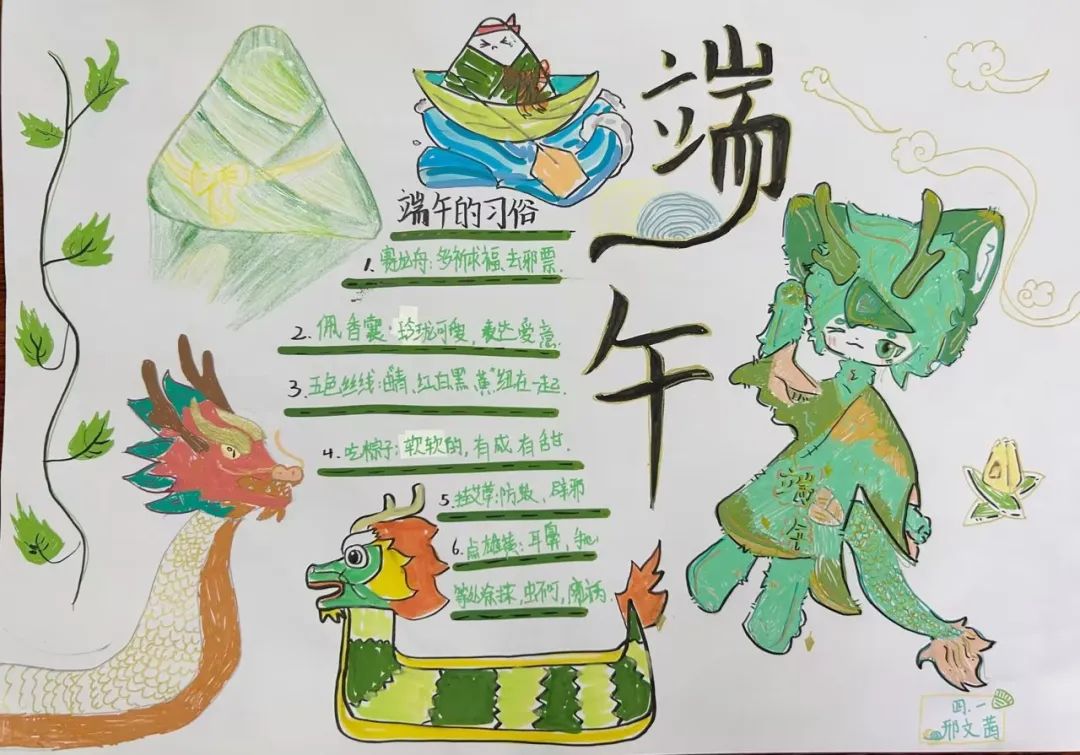 端午
端午的习俗
1. 赛龙舟:多祈求福、去邪票.
2. 佩香囊:玲珑可爱,表达爱意.
3. 五色丝线:青、红白黑黄"纽在一起.
4. 吃粽子:软软的,有咸有甜.
5. 挂艾草:防蚊、辟邪
6. 点雄黄:耳鼻、手心
等处涂抹,虫不叮,
端午
四.一
邢文茜